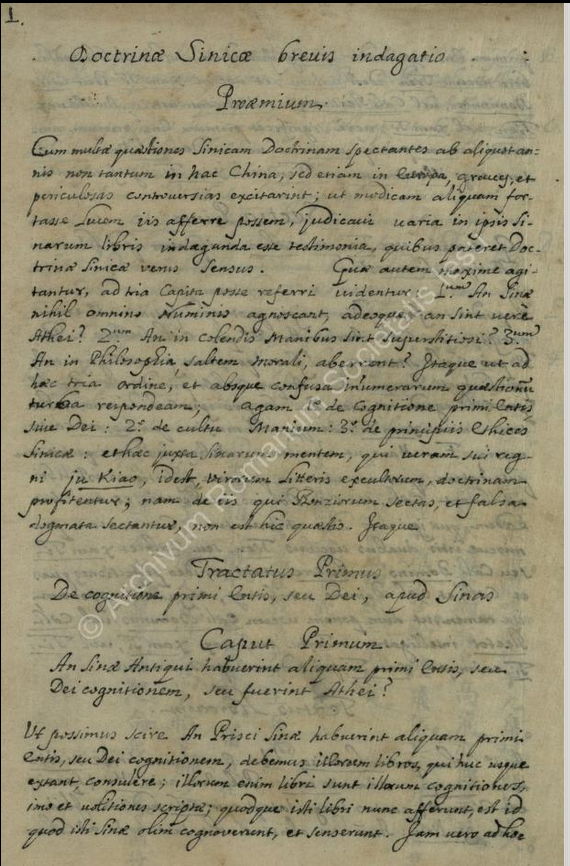 1.
Doctrinæ Sinicæ brevis indagatio
Proæmium.
Cum multæ quæstiones Sinicam Doctrinam spectantes ab aliquot an-
nis non tantum in hac China, sed etiam in Europa, graves, et
periculosas controversias excitarint; ut modicam aliquam for-
tasse lucem iis afferre possem, judicavi varia in ipsis Si-
narum libris indaganda esse testimonia, quibus pateret Doc-
trinæ Sinicæ verus sensus. Quæ autem maxime agi-
tantur, ad tria Capita posse referri videntur. 1.um An Sinæ
nihil omnino Numinis agnoscant, adeoque an sint verè
Athei? 2.um An in colendis Manibus sint superstitiosi? 3.um
An in Philosophia, saltem Morali, aberrent? Itaque ut ad
hæc tria ordine, et absque confusa innumerarum quæstionũ
turba respondeam; agam 1.o de Cognitione primi Entis
sive Dei: 2.o de cultu Manium: 3.o de principiis Ethices
Sinicæ: et hæc juxta Sinarum mentem, qui veram sui reg-
ni ju Kiao, id est, virorum litteris excultorum, doctrinam
profitentur; nam de iis qui Bonziorum sectas, et falsa
dogmata sectantur, non est hic quæstio. Itaque
Tractatus Primus
De cognitione primi Entis, seu Dei, apud Sinas
Caput Primum
An Sinæ Antiqui habuerint aliquam primi Entis, seu
Dei cognitionem, seu fuerint Athei?
Ut possimus scire An Prisci Sinæ habuerint aliquam primi
Entis, seu Dei cognitionem, debemus illorum libros, qui huc usque
extant, consulere; illorum enim libri sunt illorum cognitiones,
imo et volitiones scriptæ; quodque isti libri nunc afferunt, est id
quod isti Sinæ olim cognoverunt, et senserunt. Jam vero ad hoc